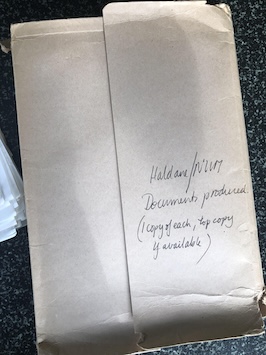 Haldane/NUM
Documents produced
(1 copy of each, top copy
if available)